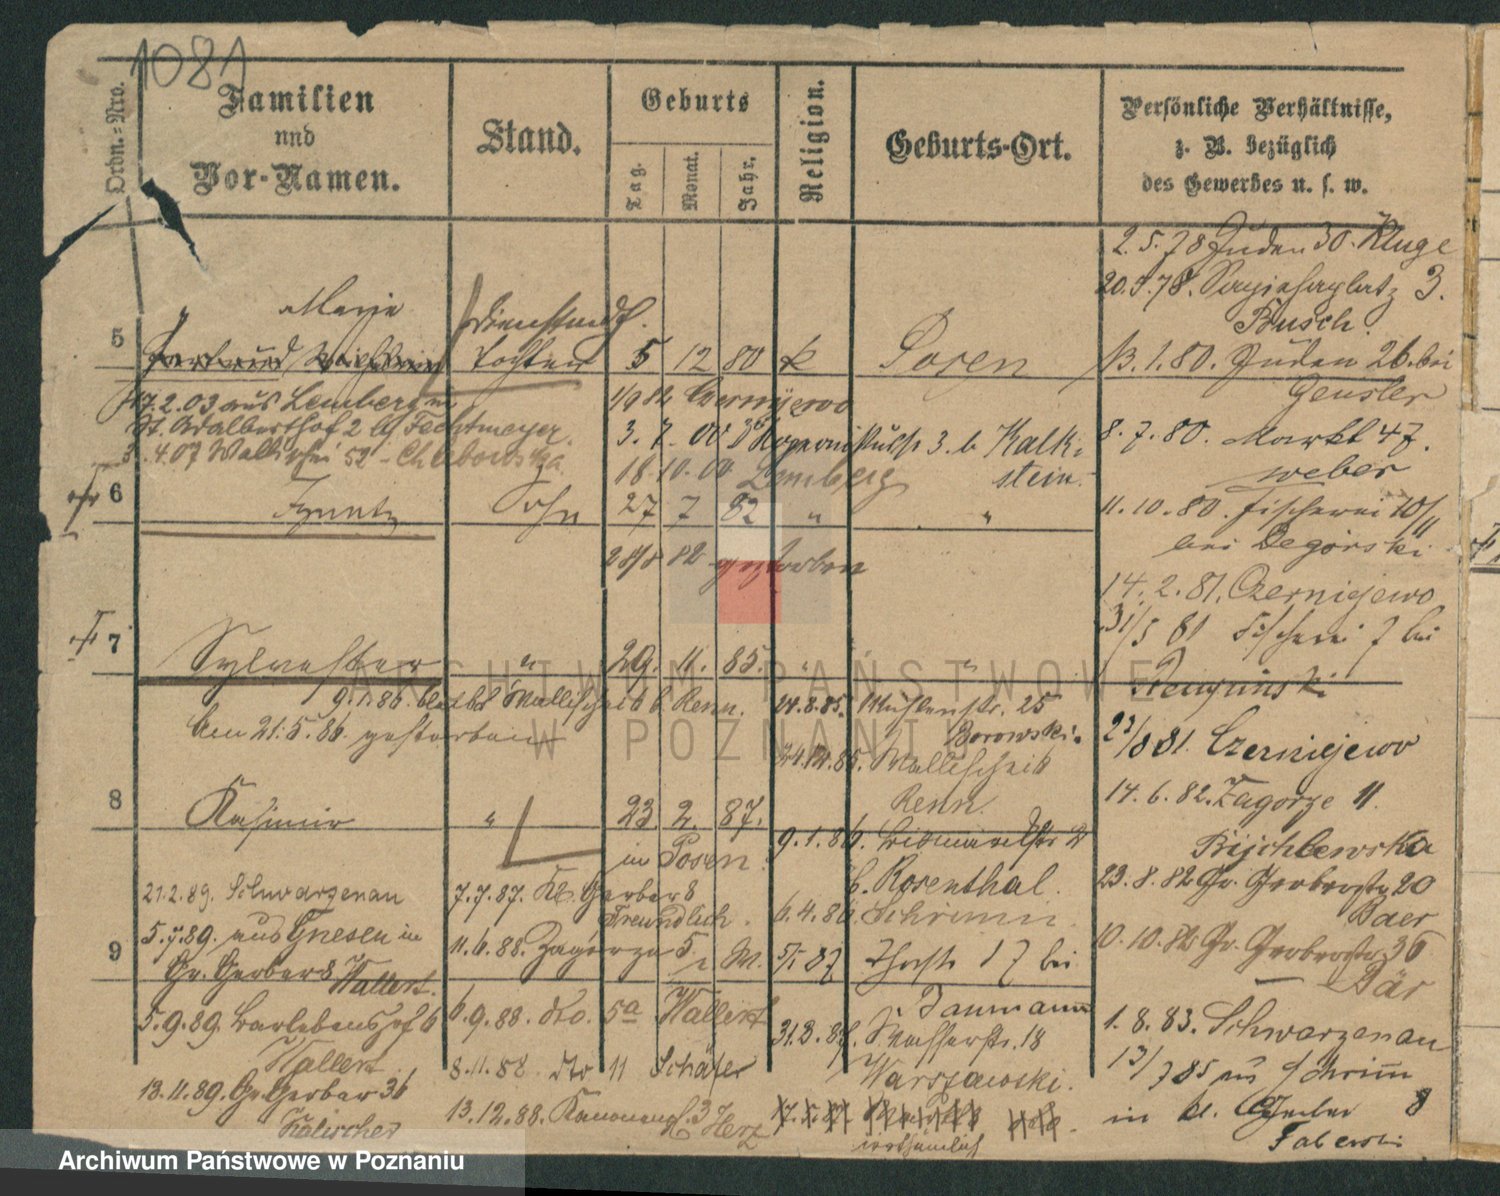 1081
Ordn.=Nro.
Familien
und
Vor-Namen.
Stand.
Geburts
Tag.
Monat.
Jahr.
Religion.
Geburts-Ort.
Persönliche Verhältnisse,
z. B. bezüglich
des Gewerbes u. s. w.
2.5.78 Juden 30. Kluge
20.5.78. Sapiehaplatz 3.
Busch.
5
Marie
Tochter
5 12 80 k
Posen
13.1.80. Juden 26. bei
Gensler
17.2.03 aus Lemberg in
St. Adalberthof 2 b Fechtmeyer.
3.4.07 Wallischei 52 - Chlebowska
1/9 82 Czerniejewo
3. 7. 00 3 b Kalk
stein.
18.10.00 Lemberg
8.7.80. Markt 47.
Weber
6
Ignatz
Sohn
27 7 82 " "
28/8 82 gestorben
11.10.80. Fischerei 10/11
bei Degórski
14.2.81. Czerniejewo
31/5 81 Fischerei 7 bei
7
Sylvester
"
29. 11. 85. " "
9.1.86. Wallischei 6 b. Renn.
Am 21.5.86. gestorben
24.8.85. Mühlenstr. 25
Borowski.
24.12.85. Wallischei 6
Renn.
23/8 81. Czerniejewo
14.6.82. Zagorze 11.
8
Kasimir
"
23. 2. 87.
in Posen.
9.1.86. Bismarckstr 2
b. Rosenthal.
6.4.86. Schrimm
23.8.82 Gr. Gerberstr 20
Baer
10.10.82 Gr. Gerberstr 36
Bär
21.2.89. Schwarzenau
5.7.89. aus Gnesen in
Gr. Gerber 8 Wallert.
5.9.89. Berlebenshof 6
Wallert
13.11.89. Gr. Gerber 36
Kalischer
7.7.87. Kl. Gerber 8
Freundlich.
11.6.88. Zagorze 5
9
6.9.88. dto. 5a Wallert
8.11.88. dto 11 Schäfer
13.12.88. Kanonenpl. 3 Herz
17 bei
Baumann
Wasserstr. 18
Warszawski.
1.8.83. Schwarzenau
13/7 85 aus Schrimm
in kl. Gerber 8
Taberski
ARCHIWUM PAŃSTWOWE
W POZNANIU
Archiwum Państwowe w Poznaniu